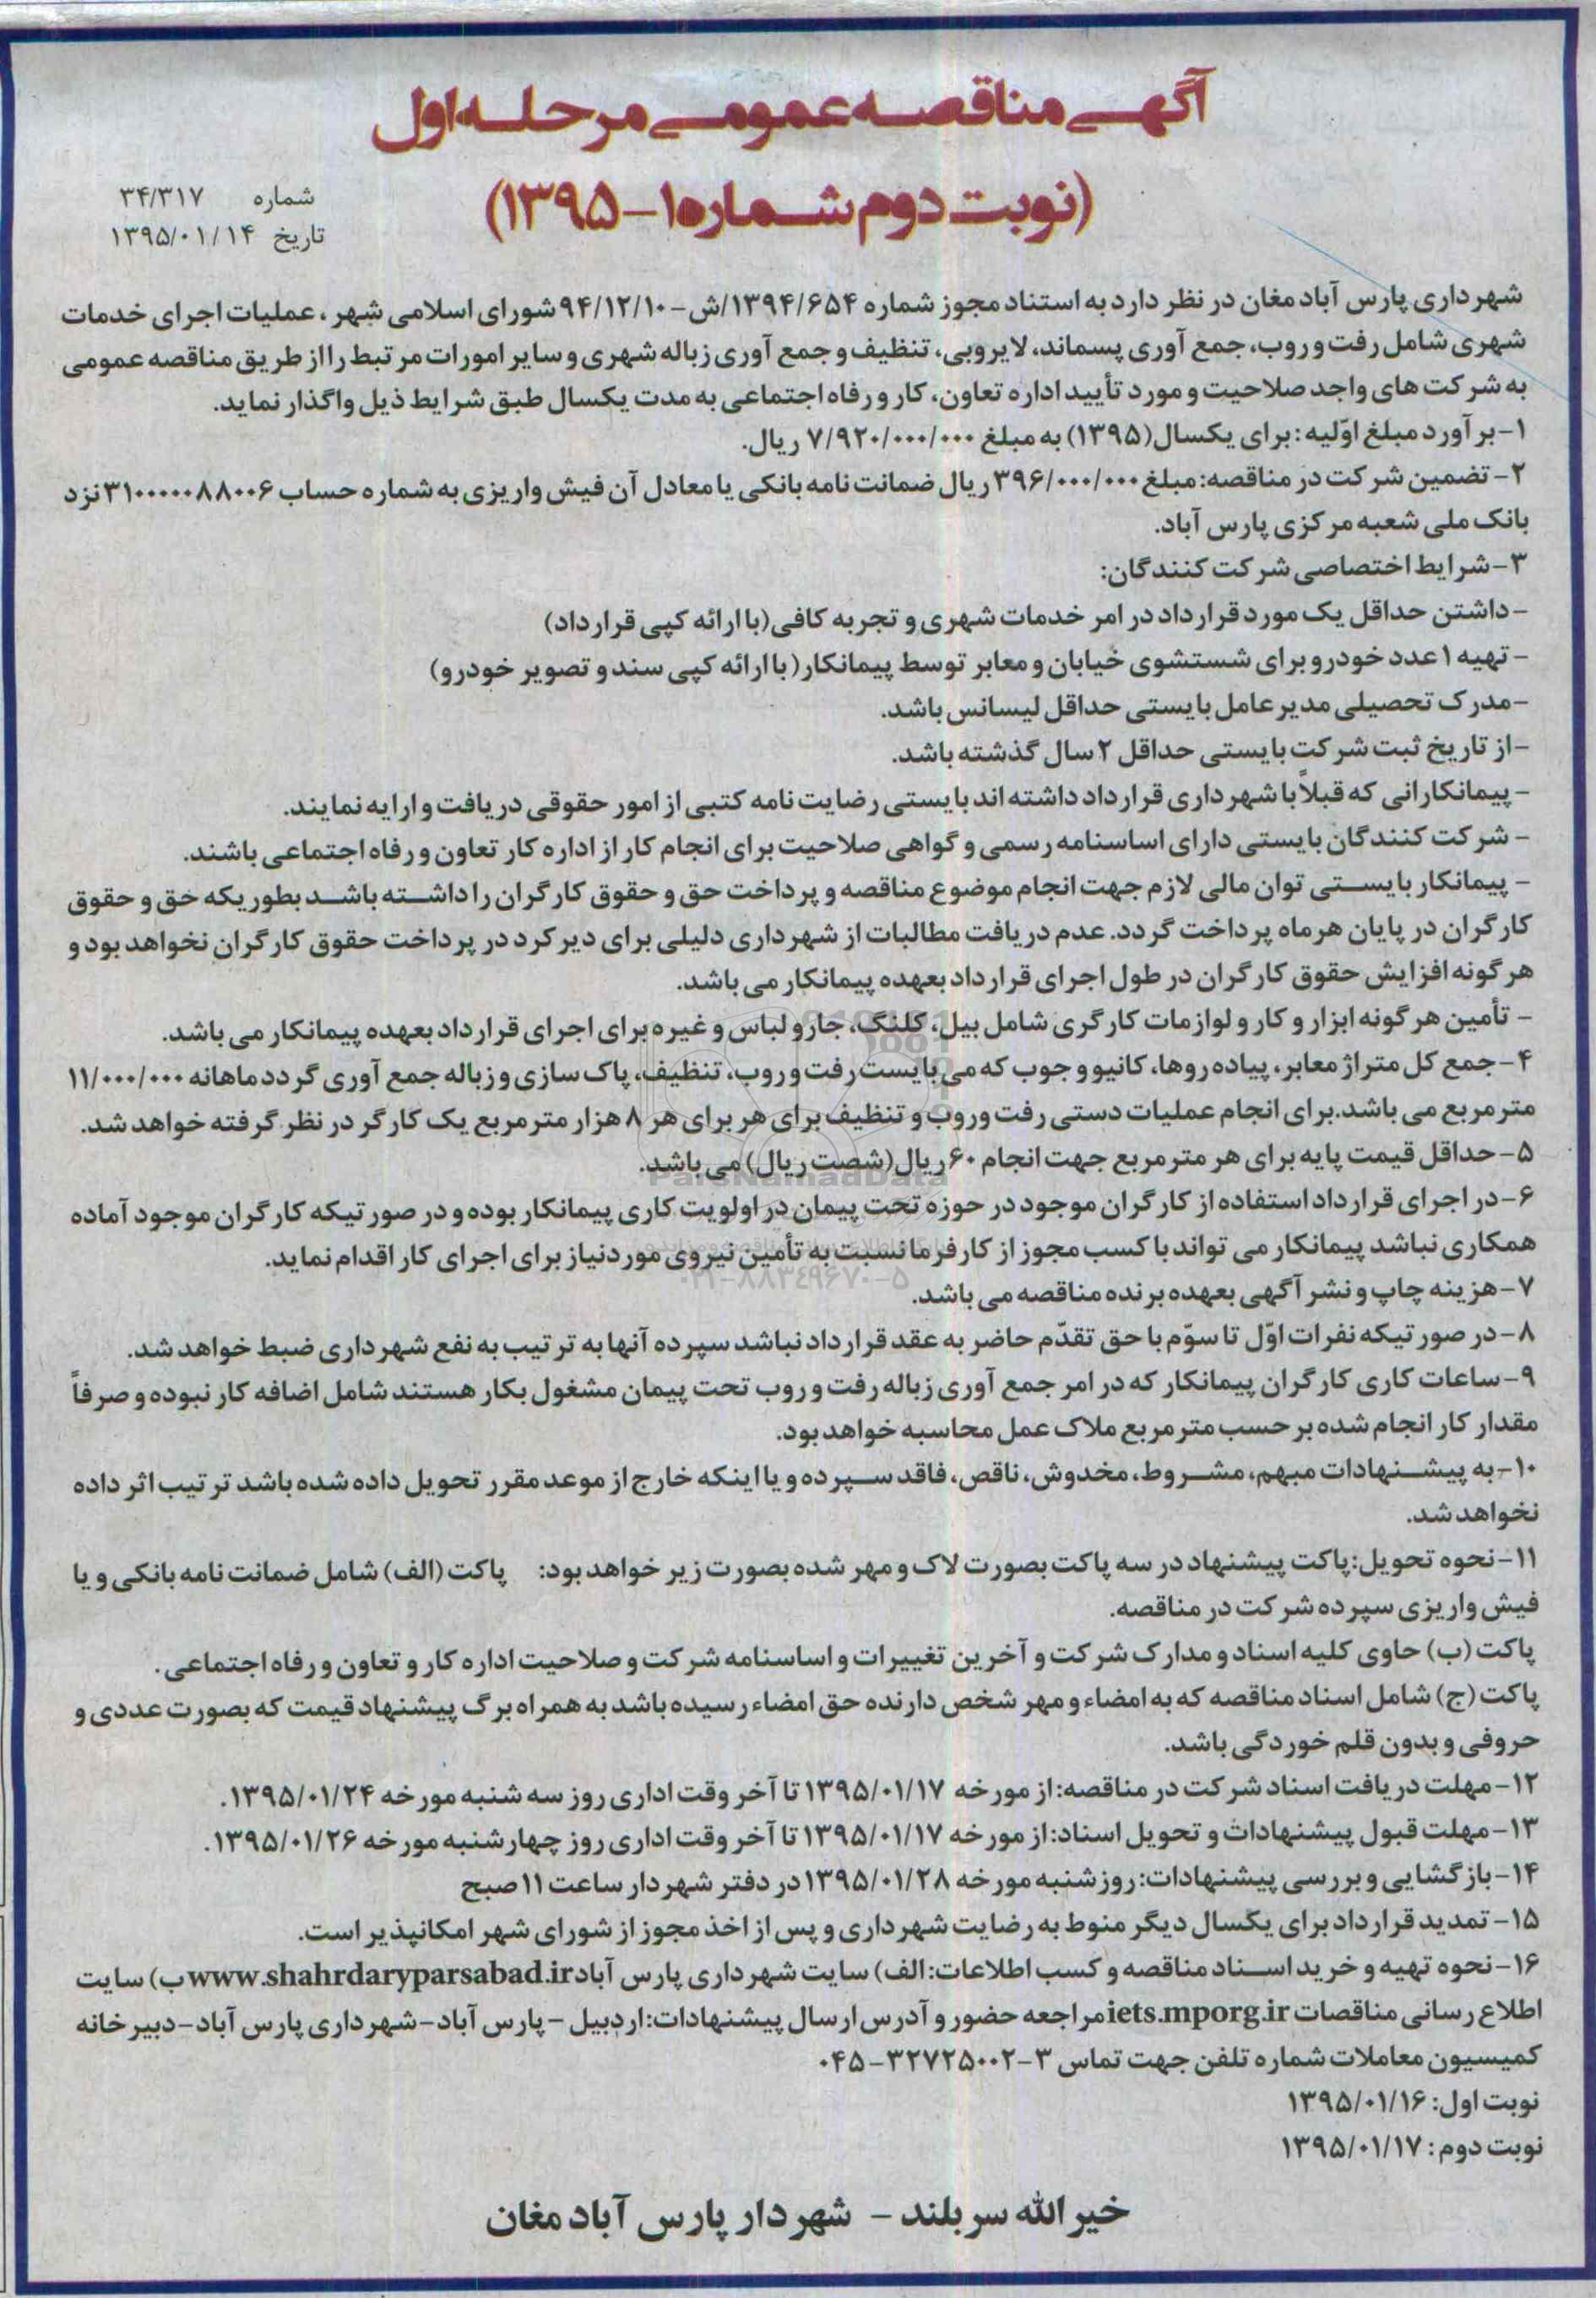 آگهی مناقصه عمومی مرحله اول
(نوبت دوم شماره ۱-۱۳۹۵)
شماره ۳۴/۳۱۷
تاریخ ۱۳۹۵/۰۱/۱۴
شهرداری پارس آباد مغان در نظر دارد به استناد مجوز شماره ۱۳۹۴/۶۵۴/ش-۹۴/۱۲/۱۰ شورای اسلامی شهر، عملیات اجرای خدمات
شهری شامل رفت و روب، جمع آوری پسماند، لایروبی، تنظیف و جمع آوری زباله شهری و سایر امورات مرتبط را از طریق مناقصه عمومی
به شرکت های واجد صلاحیت و مورد تأیید اداره تعاون، کار و رفاه اجتماعی به مدت یکسال طبق شرایط ذیل واگذار نماید.
۱-برآورد مبلغ اوّلیه: برای یکسال(۱۳۹۵) به مبلغ ۷/۹۲۰/۰۰۰/۰۰۰ ریال.
۲-تضمین شرکت در مناقصه: مبلغ ۳۹۶/۰۰۰/۰۰۰ ریال ضمانت نامه بانکی یا معادل آن فیش واریزی به شماره حساب ۳۱۰۰۰۰۰۸۸۰۰۶ نزد
بانک ملی شعبه مرکزی پارس آباد.
۳-شرایط اختصاصی شرکت کنندگان:
-داشتن حداقل یک مورد قرارداد در امر خدمات شهری و تجربه کافی(با ارائه کپی قرارداد)
- تهیه ۱ عدد خودرو برای شستشوی خیابان و معابر توسط پیمانکار( با ارائه کپی سند و تصویر خودرو)
-مدرک تحصیلی مدیرعامل بایستی حداقل لیسانس باشد.
-از تاریخ ثبت شرکت بایستی حداقل ۲ سال گذشته باشد.
- پیمانکارانی که قبلاً با شهرداری قرارداد داشته اند بایستی رضایت نامه کتبی از امور حقوقی دریافت و ارایه نمایند.
- شرکت کنندگان بایستی دارای اساسنامه رسمی و گواهی صلاحیت برای انجام کار از اداره کار تعاون و رفاه اجتماعی باشند.
- پیمانکار بایستی توان مالی لازم جهت انجام موضوع مناقصه و پرداخت حق و حقوق کارگران را داشته باشد بطوریکه حق و حقوق
کارگران در پایان هرماه پرداخت گردد. عدم دریافت مطالبات از شهرداری دلیلی برای دیرکرد در پرداخت حقوق کارگران نخواهد بود و
هر گونه افزایش حقوق کارگران در طول اجرای قرارداد بعهده پیمانکار می باشد.
- تأمین هر گونه ابزار و کار و لوازمات کارگری شامل بیل، کلنگ، جارو لباس و غیره برای اجرای قرارداد بعهده پیمانکار می باشد.
۴-جمع کل متراژ معابر، پیاده روها، کانیو و جوب که می بایست رفت و روب، تنظیف، پاک سازی و زباله جمع آوری گردد ماهانه ۱۱/۰۰۰/۰۰۰
مترمربع می باشد. برای انجام عملیات دستی رفت وروب و تنظیف برای هر برای هر ۸ هزار مترمربع یک کارگر در نظر گرفته خواهد شد.
۵-حداقل قیمت پایه برای هر مترمربع جهت انجام ۶۰ ریال(شصت ریال) می باشد.
ParsNamadData
۶-در اجرای قرارداد استفاده از کارگران موجود در حوزه تحت پیمان در اولویت کاری پیمانکار بوده و در صورتیکه کارگران موجود آماده
همکاری نباشد پیمانکار می تواند با کسب مجوز از کارفرما نسبت به تأمین نیروی موردنیاز برای اجرای کار اقدام نماید.
۰۲۱-۸۸۳۴۹۶۷۰-۵
۷-هزینه چاپ و نشر آگهی بعهده برنده مناقصه می باشد.
۸-در صورتیکه نفرات اوّل تا سوّم با حق تقدّم حاضر به عقد قرارداد نباشد سپرده آنها به ترتیب به نفع شهرداری ضبط خواهد شد.
۹-ساعات کاری کارگران پیمانکار که در امر جمع آوری زباله رفت و روب تحت پیمان مشغول بکار هستند شامل اضافه کار نبوده و صرفاً
مقدار کار انجام شده بر حسب مترمربع ملاک عمل محاسبه خواهد بود.
۱۰-به پیشنهادات مبهم، مشروط، مخدوش، ناقص، فاقد سپرده و یا اینکه خارج از موعد مقرر تحویل داده شده باشد ترتیب اثر داده
نخواهد شد.
۱۱-نحوه تحویل: پاکت پیشنهاد در سه پاکت بصورت لاک و مهر شده بصورت زیر خواهد بود: پاکت (الف) شامل ضمانت نامه بانکی و یا
فیش واریزی سپرده شرکت در مناقصه.
پاکت (ب) حاوی کلیه اسناد و مدارک شرکت و آخرین تغییرات و اساسنامه شرکت و صلاحیت اداره کار و تعاون و رفاه اجتماعی.
پاکت (ج) شامل اسناد مناقصه که به امضاء و مهر شخص دارنده حق امضاء رسیده باشد به همراه برگ پیشنهاد قیمت که بصورت عددی و
حروفی و بدون قلم خوردگی باشد.
۱۲-مهلت دریافت اسناد شرکت در مناقصه: از مورخه ۱۳۹۵/۰۱/۱۷ تا آخر وقت اداری روز سه شنبه مورخه ۱۳۹۵/۰۱/۲۴.
۱۳-مهلت قبول پیشنهادات و تحویل اسناد: از مورخه ۱۳۹۵/۰۱/۱۷ تا آخر وقت اداری روز چهارشنبه مورخه ۱۳۹۵/۰۱/۲۶.
۱۴-بازگشایی و بررسی پیشنهادات: روز شنبه مورخه ۱۳۹۵/۰۱/۲۸ در دفتر شهردار ساعت ۱۱ صبح
۱۵-تمدید قرارداد برای یکسال دیگر منوط به رضایت شهرداری و پس از اخذ مجوز از شورای شهر امکانپذیر است.
۱۶-نحوه تهیه و خرید اسناد مناقصه و کسب اطلاعات: الف) سایت شهرداری پارس آباد www.shahrdaryparsabad.ir ب) سایت
اطلاع رسانی مناقصات iets.mporg.ir مراجعه حضور و آدرس ارسال پیشنهادات: اردبیل - پارس آباد-شهرداری پارس آباد-دبیرخانه
کمیسیون معاملات شماره تلفن جهت تماس ۳-۰۴۵-۳۲۷۲۵۰۰۲
نوبت اول: ۱۳۹۵/۰۱/۱۶
نوبت دوم: ۱۳۹۵/۰۱/۱۷
خیرالله سربلند - شهردار پارس آباد مغان